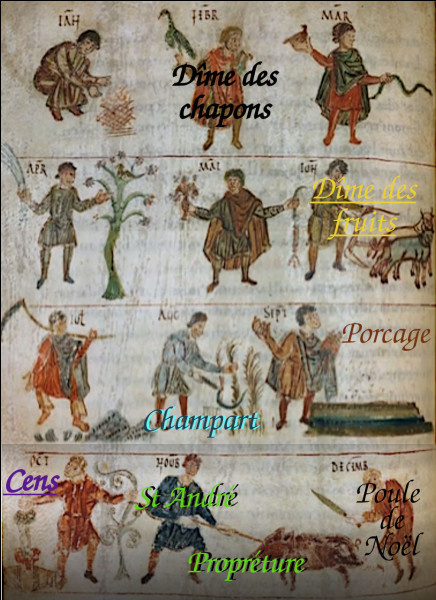 IAH FEBR MAR
Dîme des
chapons
APR MAI IUH
Dîme des
fruits
IUL AUG SEPT
Porcage
Champart
OCT HOUB DECEMB
Cens
St André
Poule
de
Noël
Propréture